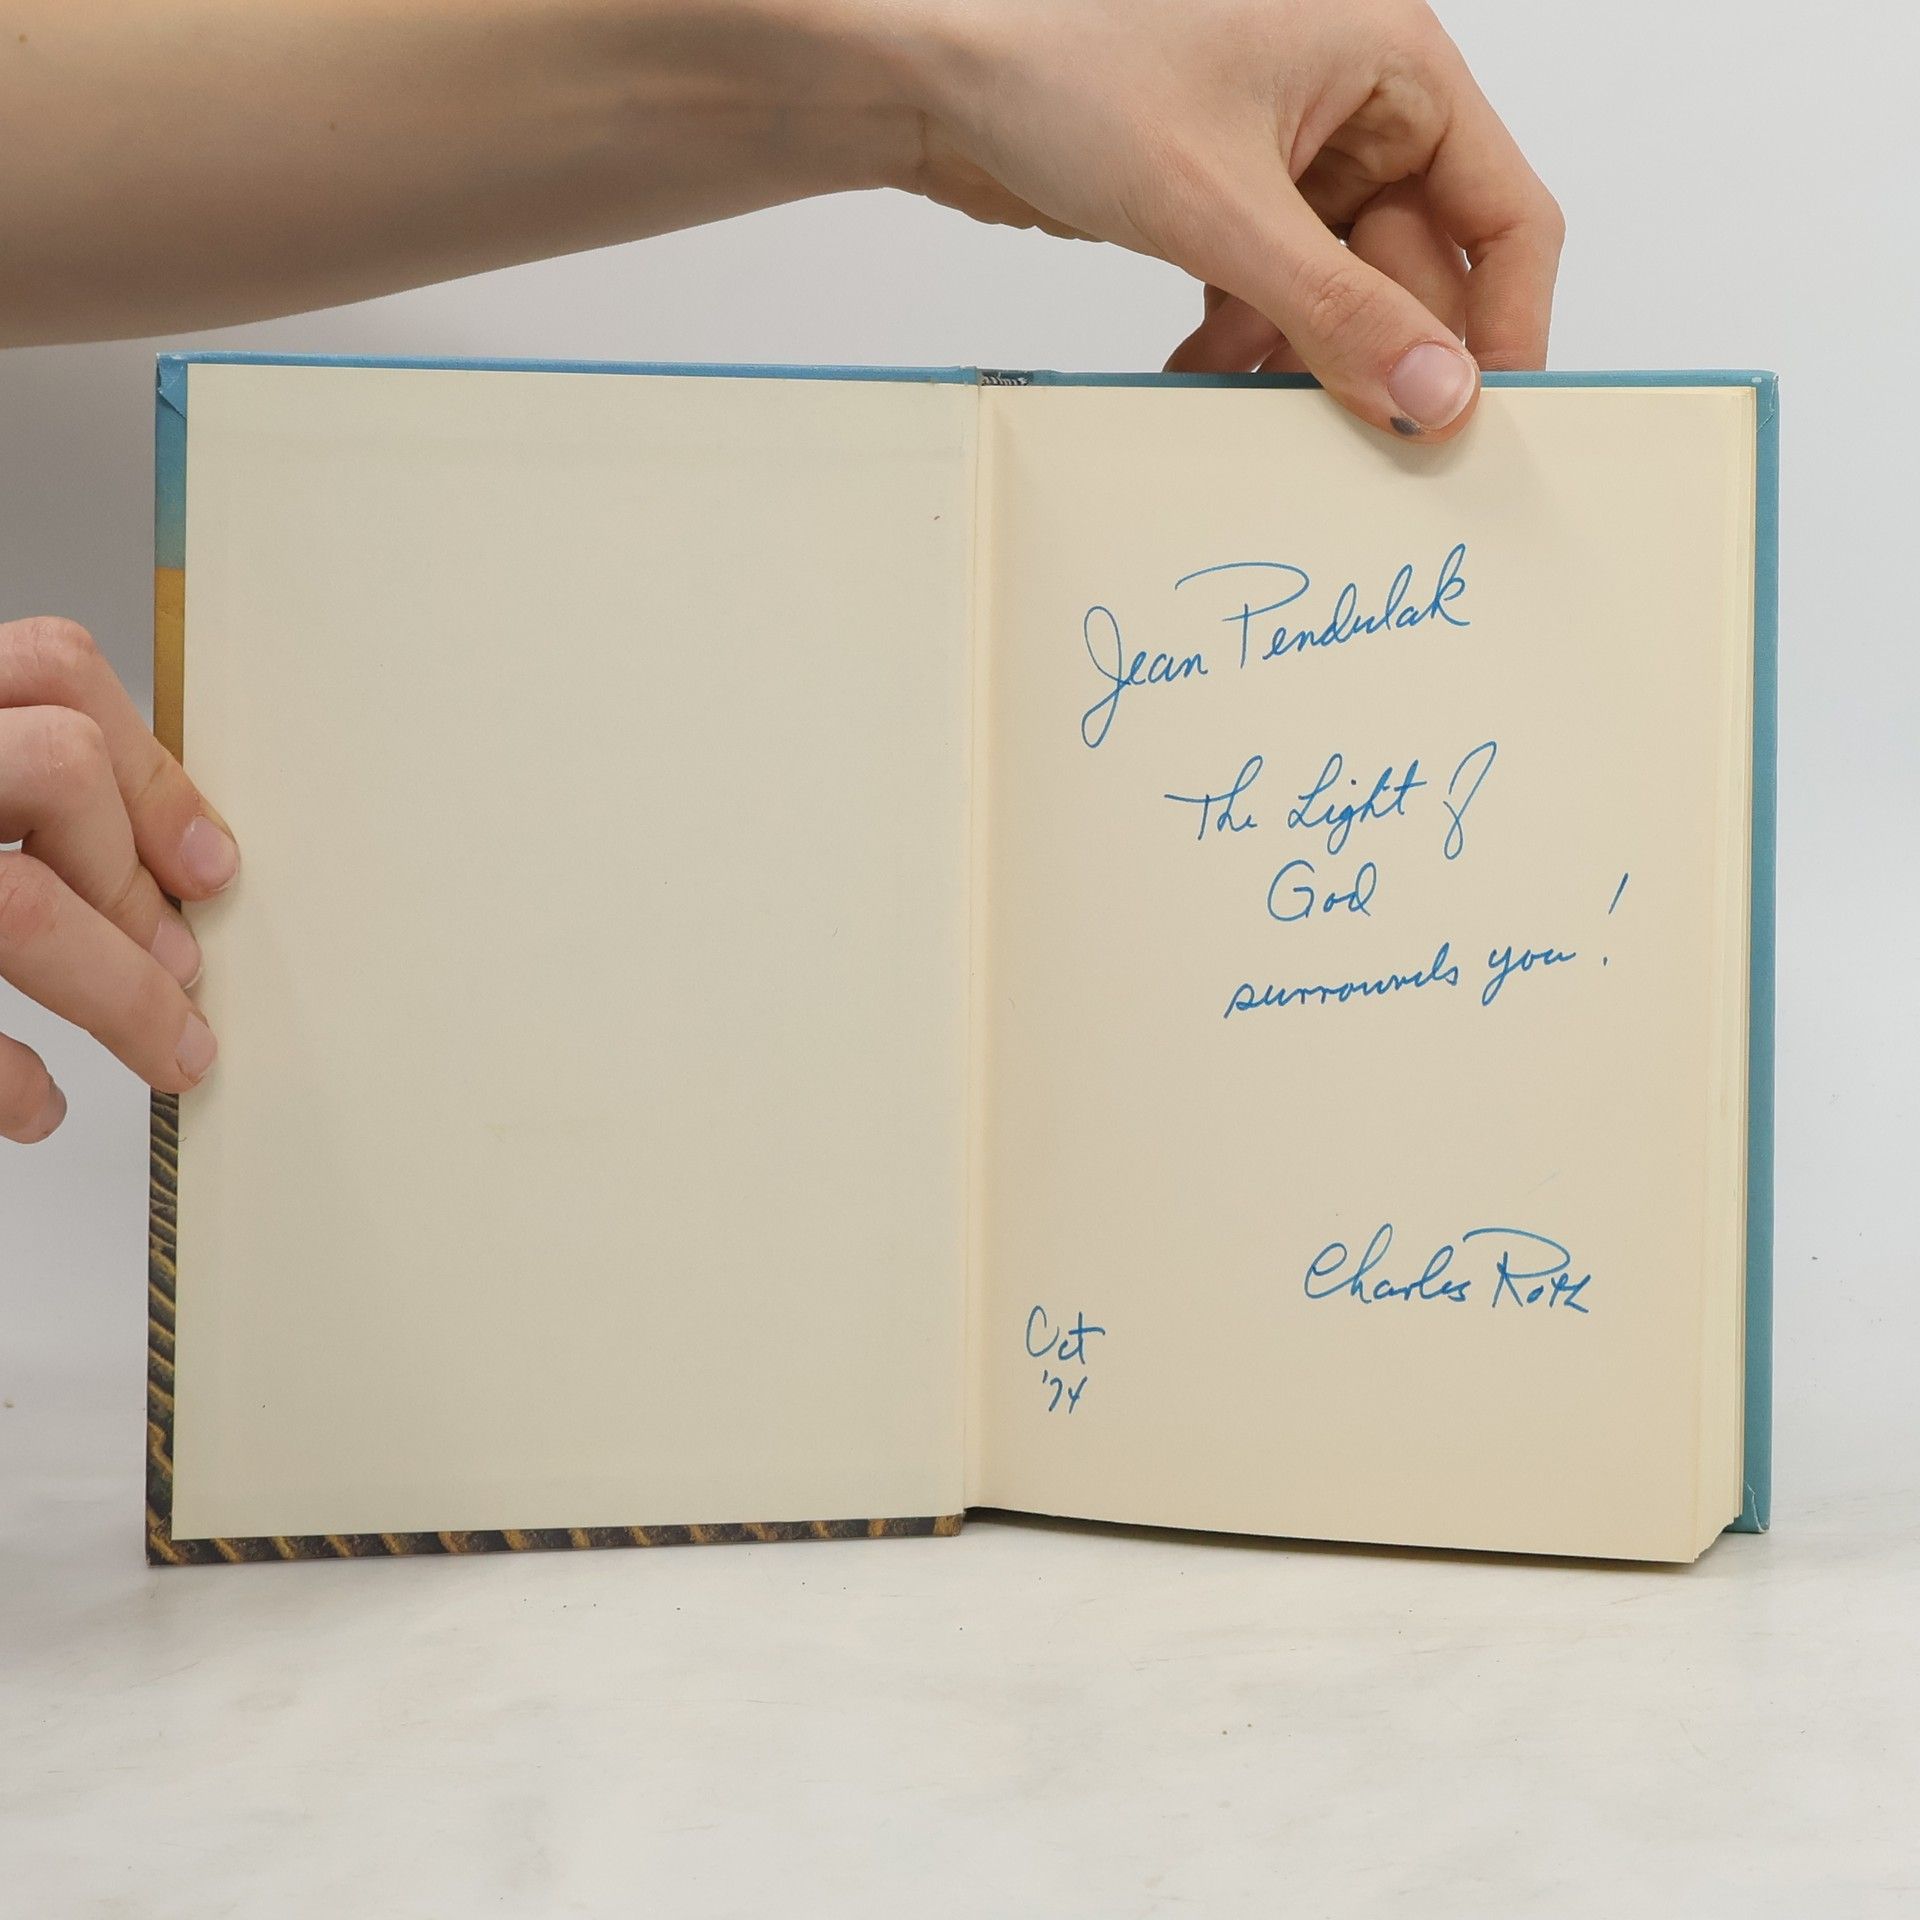 Jean Pendulak
The Light of
God
surrounds you!
Charles Roth
Oct
'74